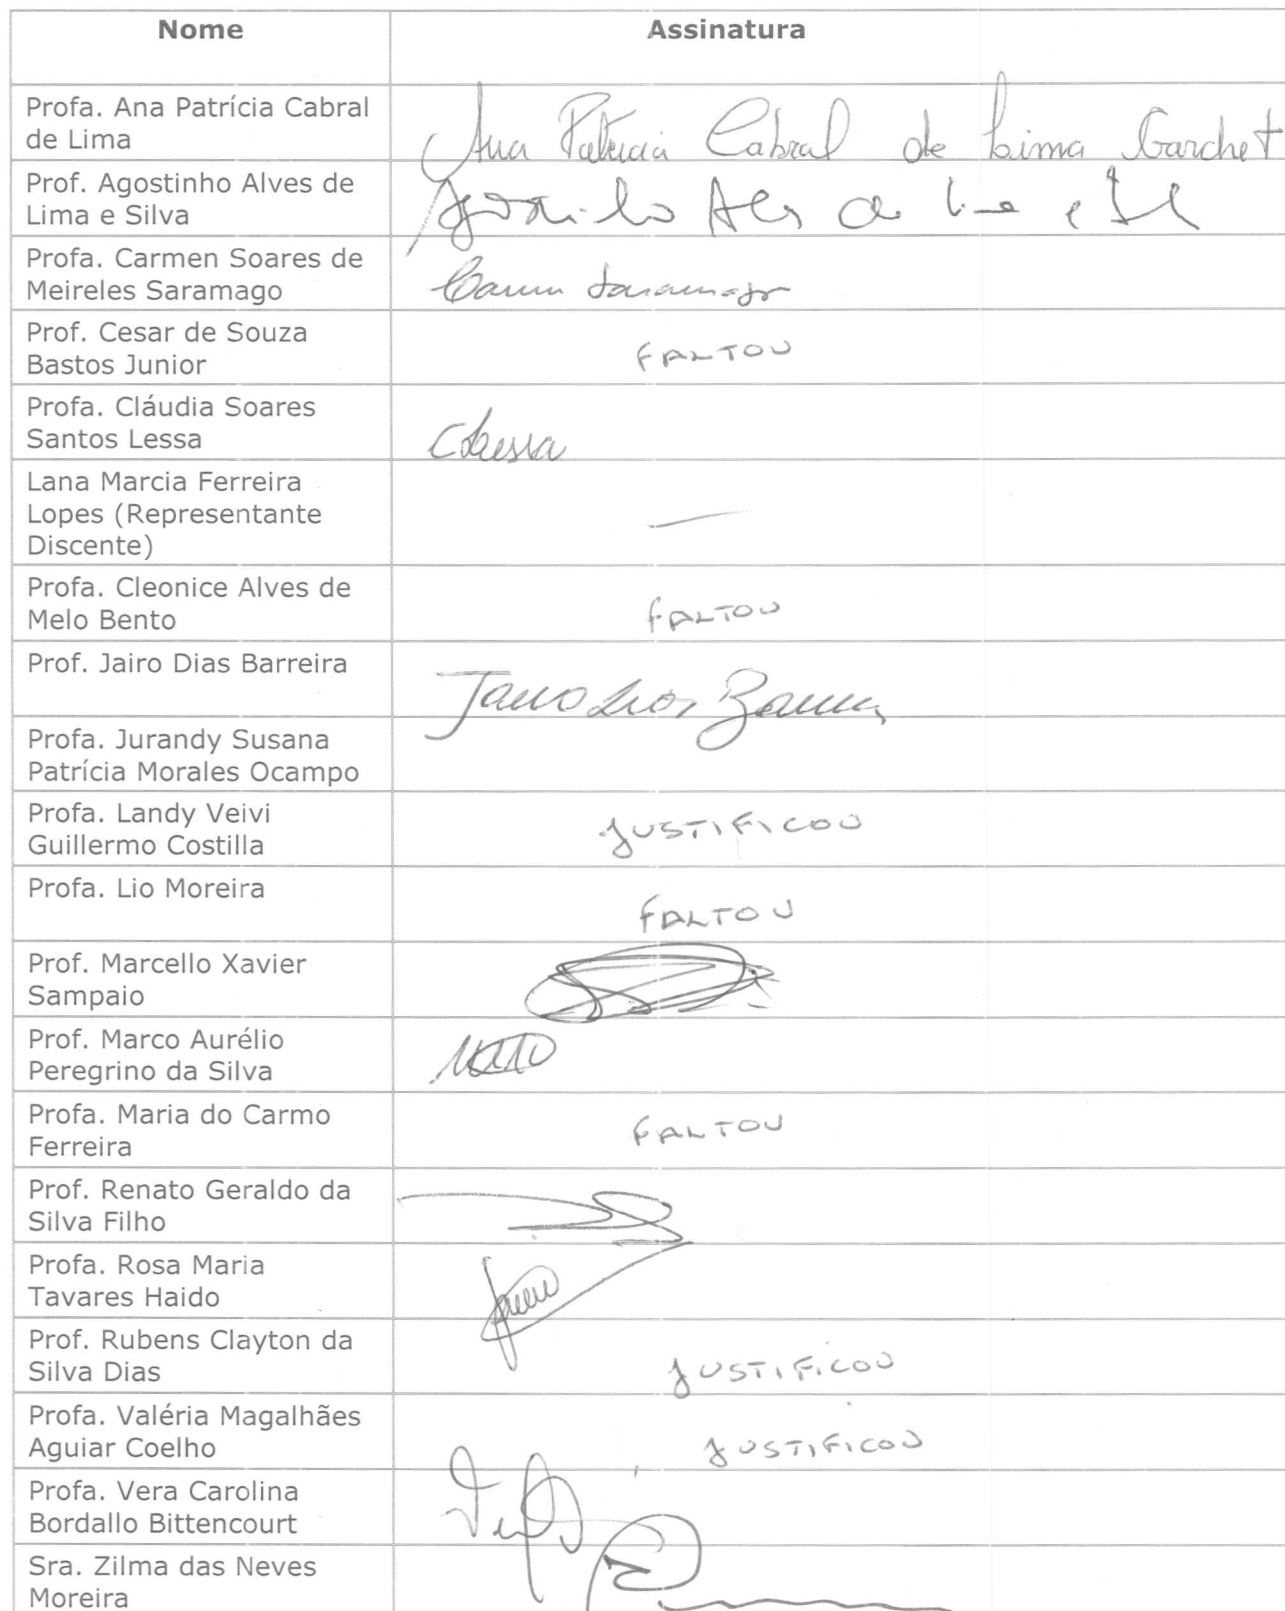 Nome Assinatura
Profa. Ana Patrícia Cabral
de Lima
Ana Patricia Cabral de Lima Garchet
Prof. Agostinho Alves de
Lima e Silva
Agostinho Alves de Lima e Sil
Profa. Carmen Soares de
Meireles Saramago
Carmen Saramago
Prof. Cesar de Souza
Bastos Junior
FALTOU
Profa. Cláudia Soares
Santos Lessa
CLessa
Lana Marcia Ferreira
Lopes (Representante
Discente)
Profa. Cleonice Alves de
Melo Bento
FALTOU
Prof. Jairo Dias Barreira
Jairo Dias Barreira
Profa. Jurandy Susana
Patrícia Morales Ocampo
Profa. Landy Veivi
Guillermo Costilla
JUSTIFICOU
Profa. Lio Moreira
FALTOU
Prof. Marcello Xavier
Sampaio
Prof. Marco Aurélio
Peregrino da Silva
Profa. Maria do Carmo
Ferreira
FALTOU
Prof. Renato Geraldo da
Silva Filho
Profa. Rosa Maria
Tavares Haido
Prof. Rubens Clayton da
Silva Dias
JUSTIFICOU
Profa. Valéria Magalhães
Aguiar Coelho
JUSTIFICOU
Profa. Vera Carolina
Bordallo Bittencourt
Sra. Zilma das Neves
Moreira